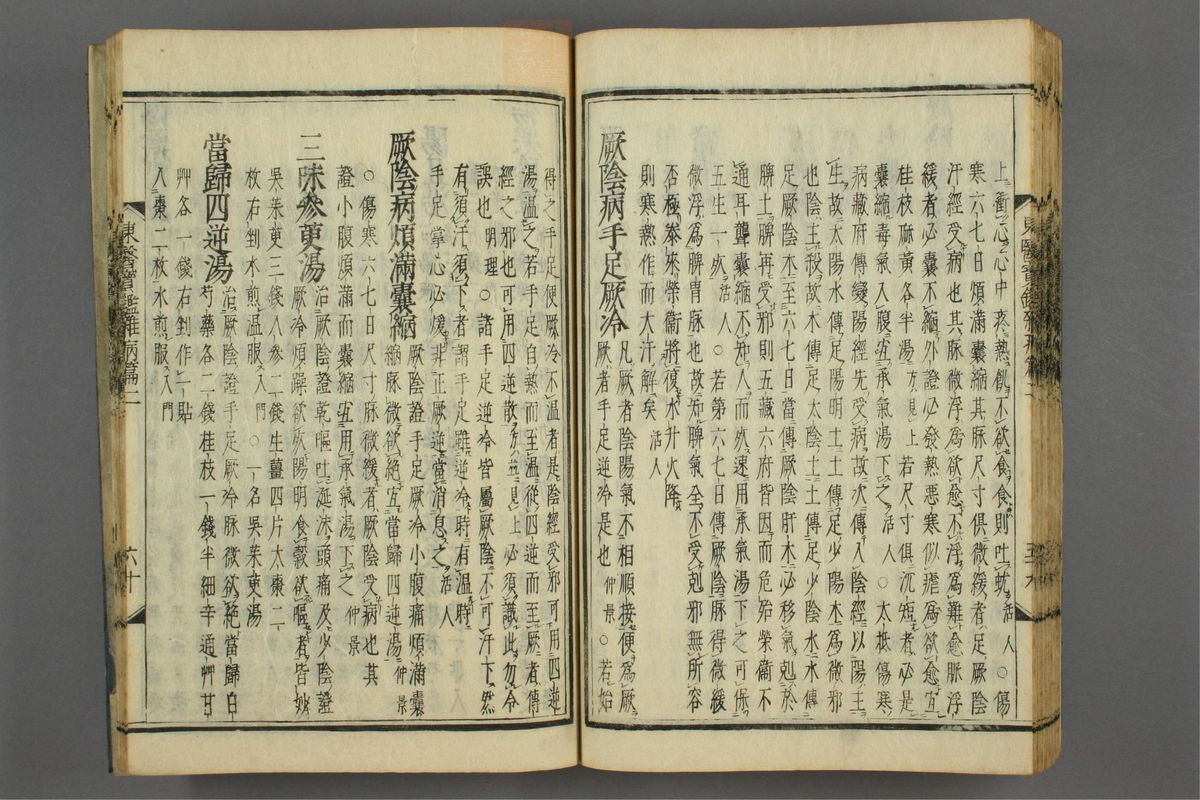 上衝心心中疼熱飢不欲食食則吐蚘活人○傷
寒六七日煩滿囊縮其脉尺寸俱微緩者足厥陰
汗經受病也其脉微浮爲欲愈不浮爲難愈脈浮
緩者必囊不縮外證必發熱惡寒似瘧爲欲愈宜
桂枝麻黃各半湯方見上若尺寸俱沉短者必是
囊縮毒氣入腹宜承氣湯下之活人○太抵傷寒
病藏府傳變陽經先受病故次傳入陰經以陽主
生故太陽水傳足陽明土土傳足少陽木爲微邪
也陰主殺故木傳足太陰土土傳足少陰水水傳
足厥陰木至六七日當傳厥陰肝木必移氣剋於
脾土脾再受邪則五藏六府皆因而危殆榮衞不
通耳聾囊縮不知人而死速用承氣湯下之可保
五生一死活人○若第六七日傳厥陰脈得微緩
微浮爲脾胃脉也故知脾氣全不受剋邪無所容
否極泰來榮衞將復水升火降
則寒熱作而大汗解矣活人
厥陰病手足厥冷凡厥者陰陽氣不相順接便爲厥
厥者手足逆冷是也仲景○若始
東醫寶鑑雜病篇二
得之手足便厥冷不溫者是陰經受邪可用四逆
湯溫之若手足自熱而至溫從四逆而至厥者傳
經之邪也可用四逆散方並見上必須識此勿令
誤也明理○諸手足逆冷皆屬厥陰不可汗下然
有須汗須下者謂手足雖逆冷時有溫時
手足掌心必煖非正厥逆當消息之活人
厥陰病煩滿囊縮厥陰證手足厥冷小腹痛煩滿囊
縮脉微欲絕宜當歸四逆湯仲景
○傷寒六七日尺寸脉微緩者厥陰受病也其
證小腹煩滿而囊縮宜用承氣湯下之仲景
三味參萸湯治厥陰證乾嘔吐涎沫頭痛及少陰證
厥冷煩躁欲死陽明食穀欲嘔者皆妙
吳茱萸三錢人參二錢生薑四片大棗二
枚右剉水煎溫服入門○一名吳茱萸湯
當歸四逆湯治厥陰證手足厥冷脉微欲絕當歸白
芍藥各二錢桂枝一錢半細辛通艸甘
艸各一錢右剉作一貼
入棗二枚水煎服入門
東醫寶鑑雜病篇二
六十